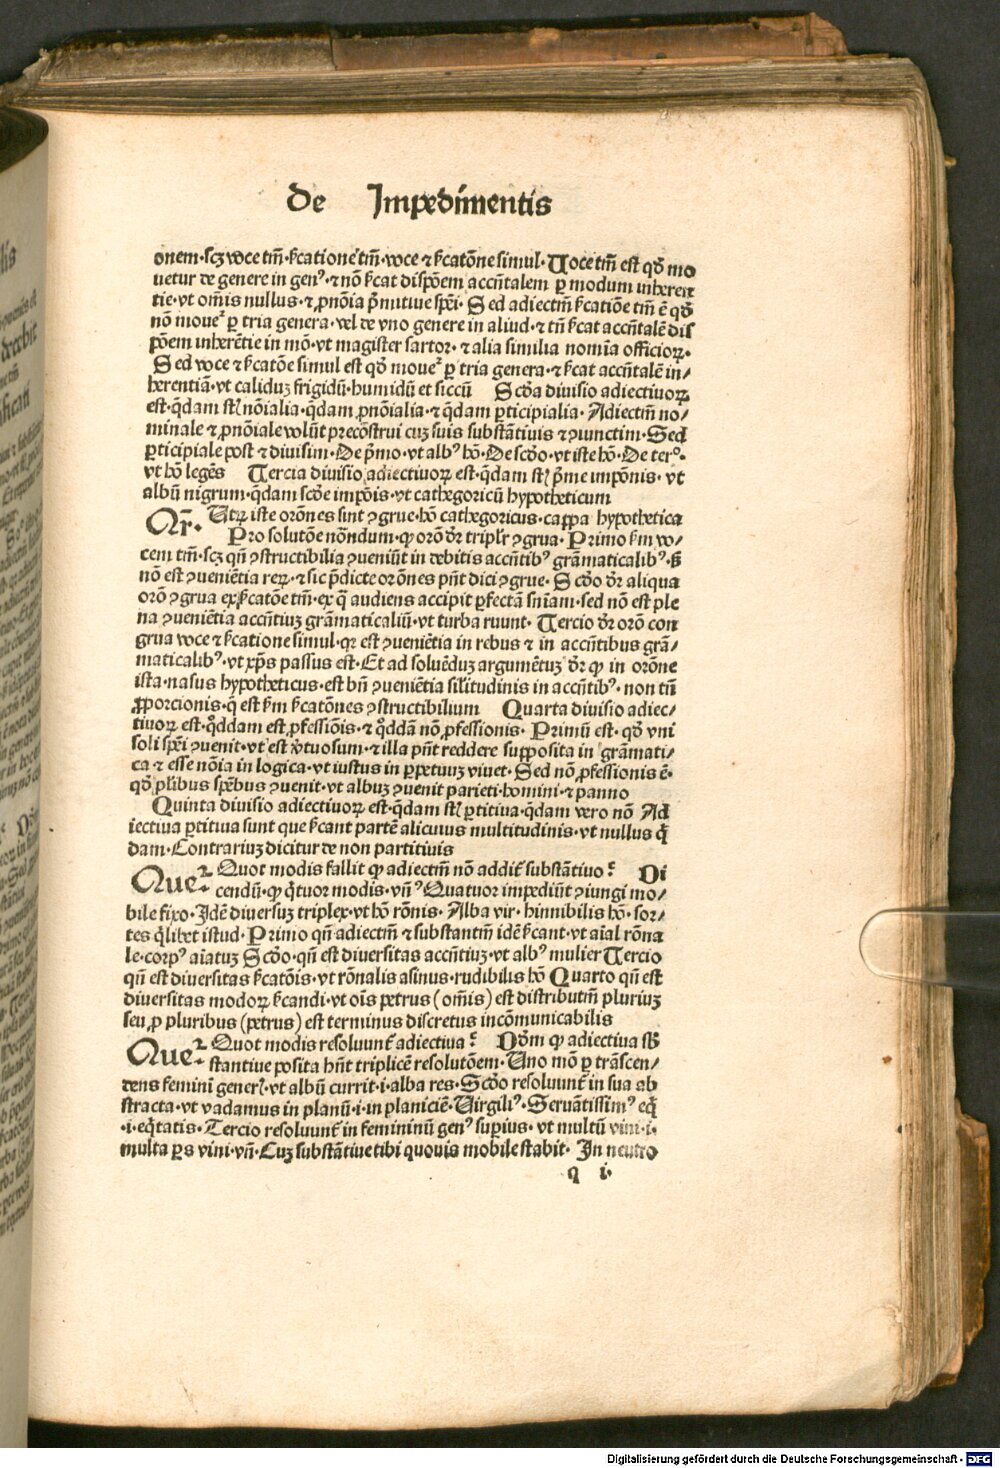 De Impedimentis
onem·scꝫ voce tm̄·ſcatione tm̄·voce ⁊ ſcatōne simul·Uoce tm̄ est qd̓ mo
uetur de genere in genꝰ·⁊ nō ſcat dispōem accn̄talem ꝑ modum inheren
tie·vt om̄is nullus·⁊ ꝓnōia p̄mitiue spēi·Sed adiectm̄ ſcatiōe tm̄ ē qd̓
nō moueᷣ ꝑ tria genera·vel de vno genere in aliud·⁊ tn̄ ſcat accn̄talē dis
pōem inherētie in mō·vt magister sartor·⁊ alia similia nomīa officioꝝ·
Sed voce ⁊ ſcatōe simul est qd̓ moueᷣ ꝑ tria genera·⁊ ſcat accn̄talē in/
herentiā·vt caliduꝫ frigidū·humidū et siccū Scd̓a diuisio adiectiuoꝝ
est·q̄dam sꝉ nōialia·q̄dam ꝓnōialia·⁊ q̄dam ꝑticipialia·Adiectm̄ no/
minale ⁊ ꝓnōiale volūt precōstrui cuꝫ suis substātiuis ⁊ ꝯiunctim·Sed
ꝑticipiale post ⁊ diuisim·De p̄mo·vt albꝰ hō·De scd̓o·vt iste hō·De terº·
vt hō legēs Tercia diuisio adiectiuoꝝ est·q̄dam sꝉ p̄me impōnis·vt
albū nigrum·q̄dam scd̓e impōis·vt cathegoricū hypotheticum
Ar̄· Utꝝ iste orōnes sint ꝯgrue·hō cathegoricus·cappa hypothetica
Pro solutōe nōndum·ꝙ orō dr̄ triplr̄ ꝯgrua·Primo ẜm vo/
cem tm̄·scꝫ qn̄ ꝯstructibilia ꝯueniūt in debitis accn̄tibꝰ grāmaticalibꝰ·ꝫ
nō est ꝯueniētia reꝝ·⁊ sic p̄dicte orōnes pn̄t dici ꝯgrue·Scd̓o dr̄ aliqua
orō ꝯgrua ex ſcatōe tm̄·ex q̄ audiens accipit ꝑfectā sn̄iam·sed nō est ple
na ꝯueniētia accn̄tiuꝫ grāmaticaliū·vt turba ruunt·Tercio dr̄ orō con
grua voce ⁊ ſcatione simul·qꝛ est ꝯueniētia in rebus ⁊ in accn̄tibus grā/
maticalibꝰ·vt xp̄s passus est·Et ad soluēduꝫ argumētuꝫ dr̄ ꝙ in orōne
ista·nasus hypotheticus·est bn̄ ꝯueniētia silitudinis in accn̄tibꝰ·non tn̄
ꝓporcionis·q̄ est ẜm ſcatōnes ꝯstructibilium Quarta diuisio adiec/
tiuoꝝ est·qd̄dam est ꝓfessiōis·⁊ qd̄dā nō ꝓfessionis·Primū est·qd̓ vni
soli spēi ꝯuenit·vt est v̓tuosum·⁊ illa pn̄t reddere supposita in grāmati/
ca ⁊ esse nōia in logica·vt iustus in ꝑpetuuꝫ viuet·Sed nō ꝓfessionis ē·
qd̓ pl̓ibus spēbus ꝯuenit·vt albuꝫ ꝯuenit parieti·homini·⁊ panno
Quinta diuisio adiectiuoꝝ est·q̄dam sꝉ ꝑtitiua·q̄dam vero nō Ad
iectiua ꝑtitiua sunt que ſcant partē alicuius multitudinis·vt nullus q̄
dam·Contrariuꝫ dicitur de non partitiuis
Queꝛ· Quot modis fallit ꝙ adiectm̄ nō addit̄ substātiuo? Di
cendū·ꝙ q̄tuor modis·vn̄ ꝰQuatuor impediūt ꝯiungi mo/
bile fixo·Idē diuersuꝫ triplex·vt hō rōnis·Alba vir·hinnibilis hō·sor/
tes q̄libet istud·Primo qn̄ adiectm̄ ⁊ substantm̄ idē ſcant·vt aīal rōna
le·corpꝰ aīatuꝫ Scd̓o·qn̄ est diuersitas accn̄tiuꝫ·vt albꝰ mulier Tercio
qn̄ est diuersitas ſcatōis·vt rōnalis asinus·rudibilis hō Quarto qn̄ est
diuersitas modoꝝ ſcandi·vt oīs petrus (om̄is) est distributm̄ pluriuꝫ
seu ꝓ pluribus (petrus) est terminus discretus incōmunicabilis
Queꝛ· Quot modis resoluunt̄ adiectiua? Dd̓m ꝙ adiectiua sb̄
stantiue posita hn̄t triplicē resolutōem·Uno mō ꝑ trāscen/
dens feminī generꝭ·vt albū currit·i·alba res·Scd̓o resoluunt̄ in sua ab
stracta·vt vadamus in planū·i·in planiciē·Uirgiliꝰ·Seruātissimꝰ eq̄
·i·eq̄tatis·Tercio resoluunt̄ in femininū genꝰ supius·vt multū vini·i·
multa ꝑs vini·vn̄·Cuꝫ substātiue tibi quouis mobile stabit·In neutro
q i·
Digitalisierung gefördert durch die Deutsche Forschungsgemeinschaft - DFG